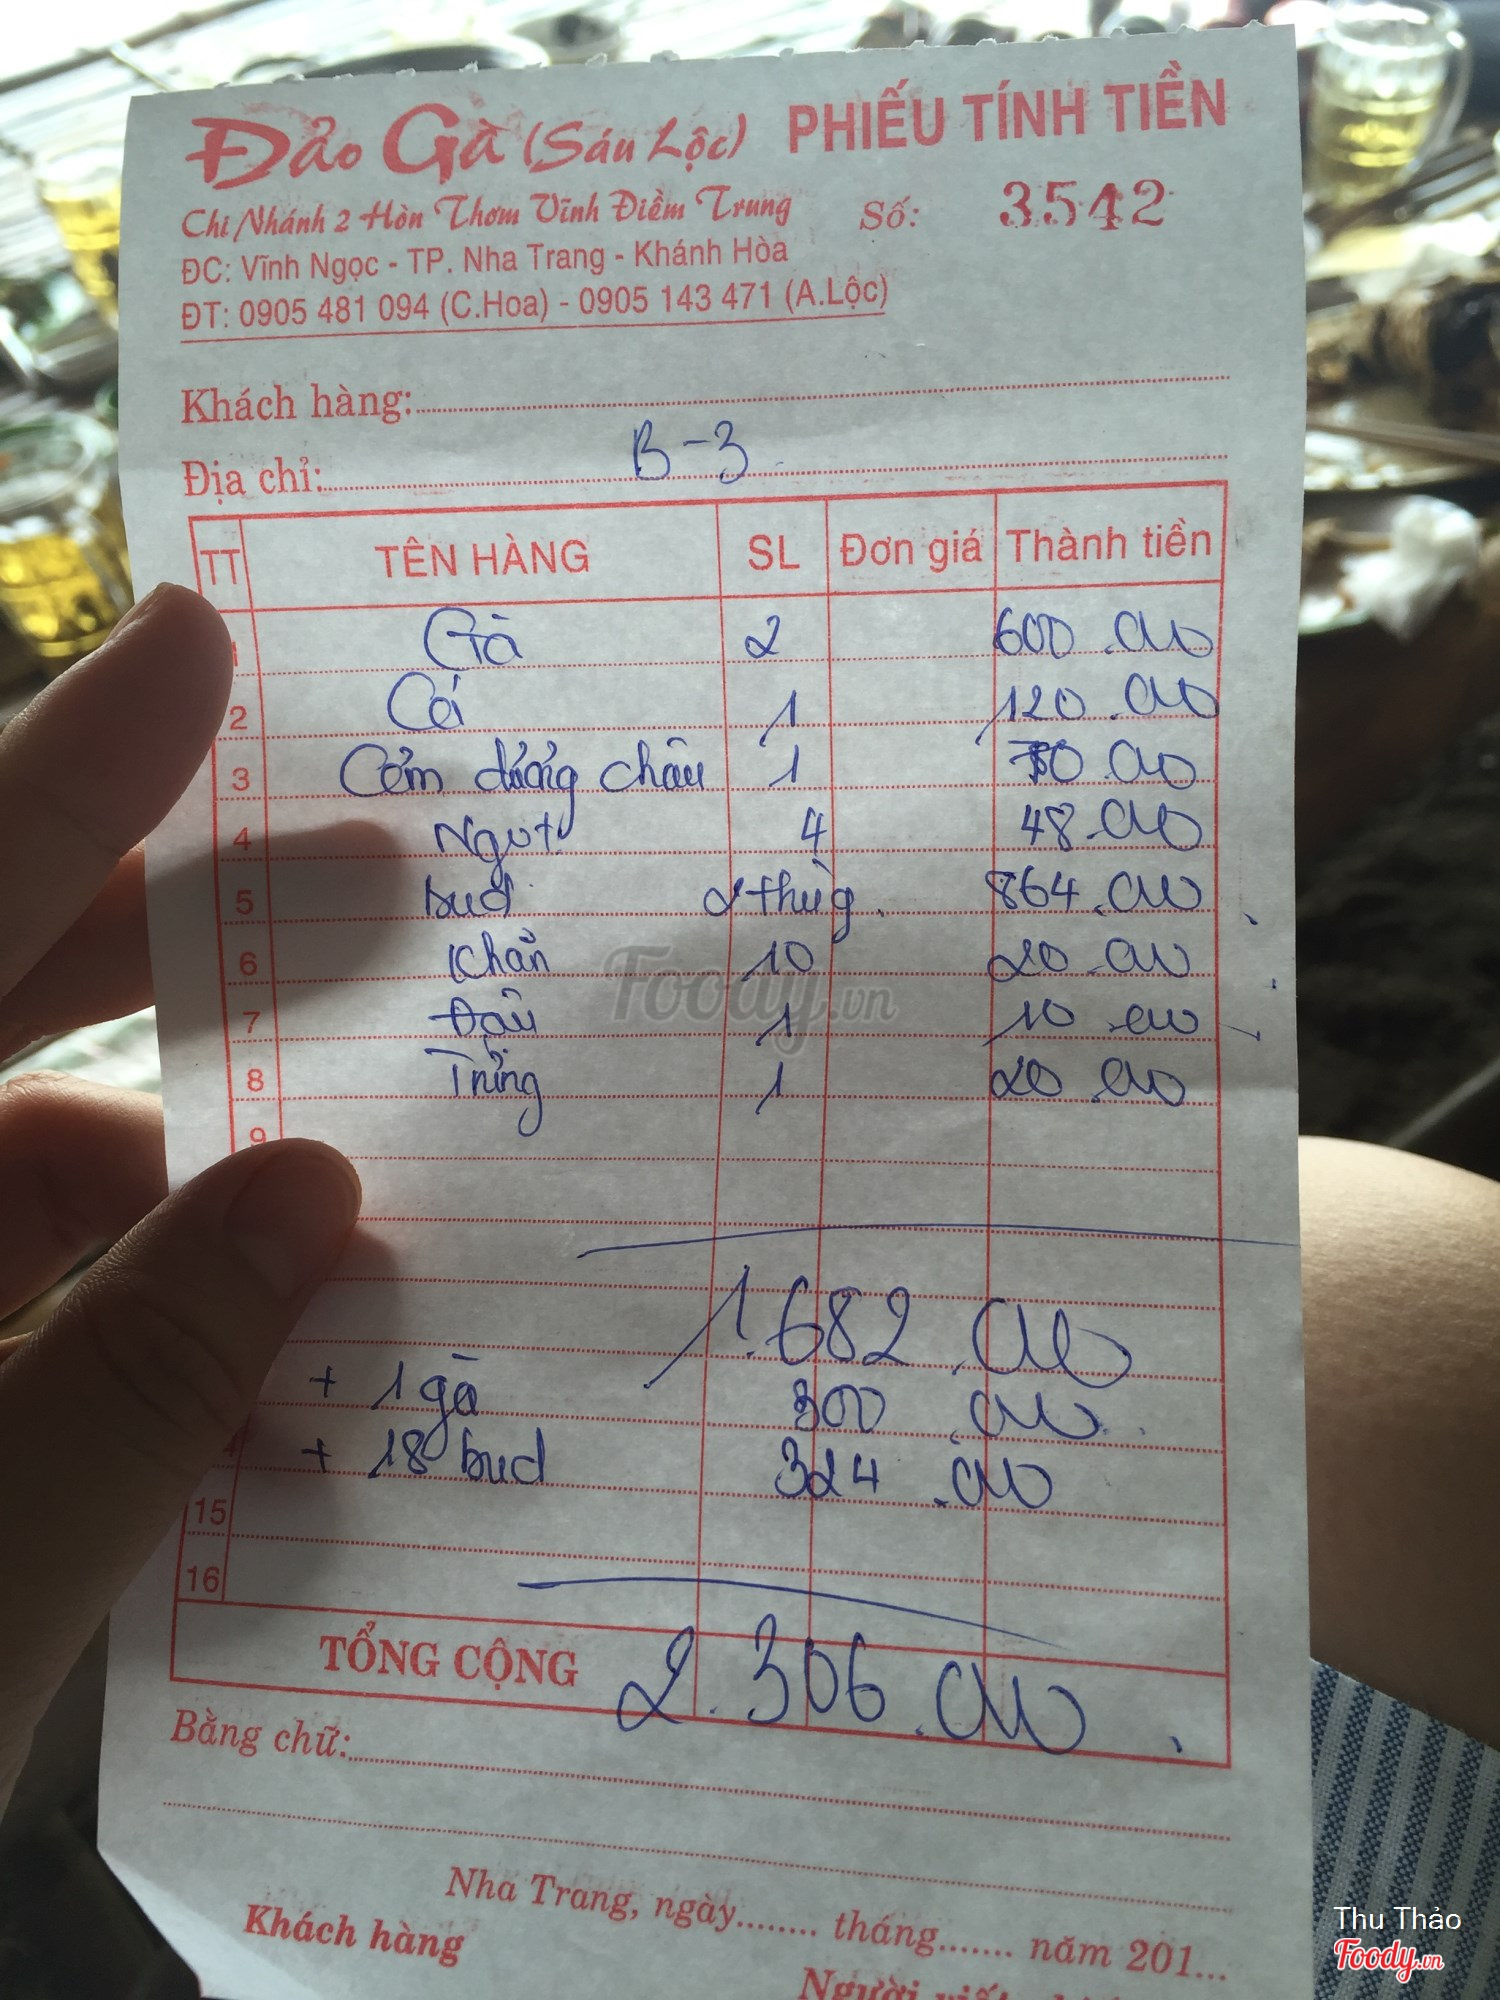 Đảo Gà (Sáu Lộc) PHIẾU TÍNH TIỀN
Chi Nhánh 2 Hòn Thơm Vĩnh Điềm Trung Số: 3542
ĐC: Vĩnh Ngọc - TP. Nha Trang - Khánh Hòa
ĐT: 0905 481 094 (C.Hoa) - 0905 143 471 (A.Lộc)
Khách hàng:
Địa chỉ: B-3
TT TÊN HÀNG SL Đơn giá Thành tiền
1 Gà 2 600.000
2 Cá 1 120.000
3 Cơm dương châu 1 000
4 Ngọt 4 48.000
5 bud 2 thùng 864.000
6 Khăn 10 20.000
7 Đậu 1 10.000
8 Trứng 1 20.000
9
1.682.000
+ 1 gà 300.000
+ 18 bud 324.000
15
16
TỔNG CỘNG 2.306.000
Bằng chữ:
Nha Trang, ngày........ tháng....... năm 201...
Khách hàng
Người viết
Foody.vn
Thu Thảo
Foody.vn